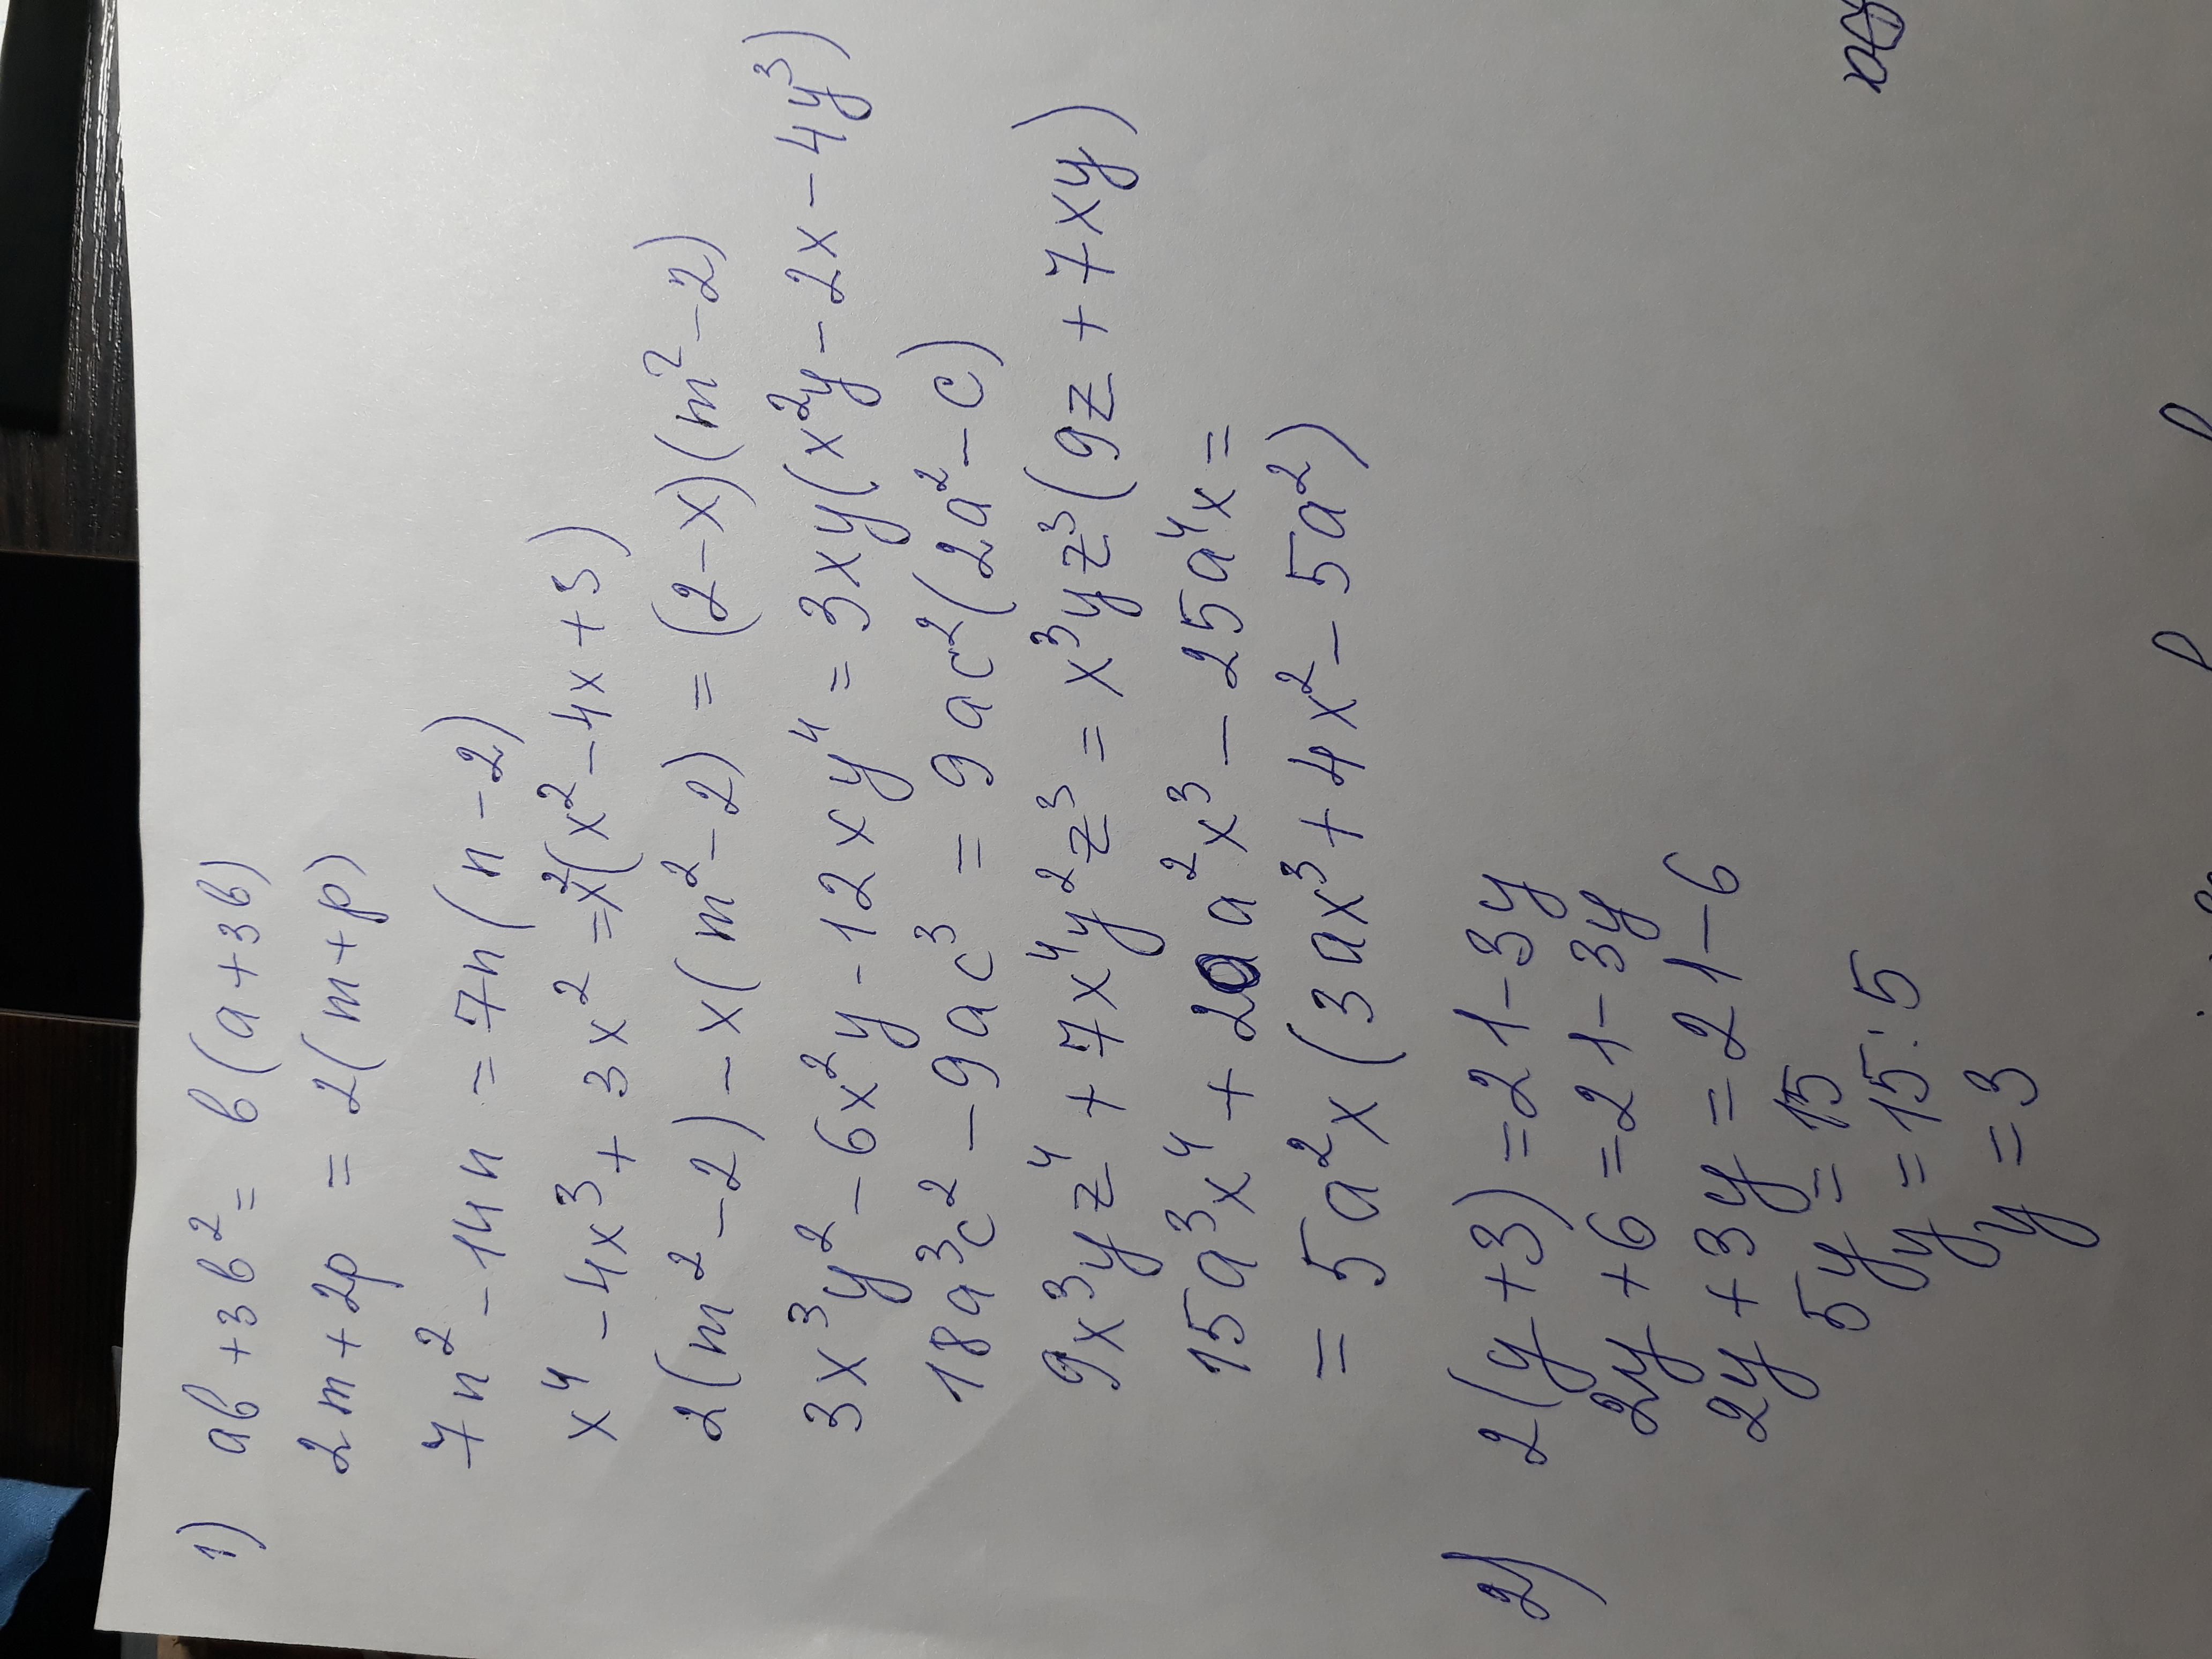 1) ab + 3b² = b(a+3b)
2m + 2p = 2(m+p)
7n² - 14n = 7n(n-2)
x⁴ - 4x³ + 3x² = x²(x² - 4x + 3)
2(m² - 2) - x(m² - 2) = (2-x)(m² - 2)
3x³y² - 6x²y - 12xy⁴ = 3xy(x²y - 2x - 4y³)
18a³c² - 9ac³ = 9ac²(2a² - c)
9x³yz⁴ + 7x⁴y²z³ = x³yz³(9z + 7xy)
15a³x⁴ + 20a²x³ - 25a⁴x =
= 5a²x(3ax³ + 4x² - 5a²)
2) 2(y+3) = 21 - 3y
2y + 6 = 21 - 3y
2y + 3y = 21 - 6
5y = 15
y = 15 : 5
y = 3